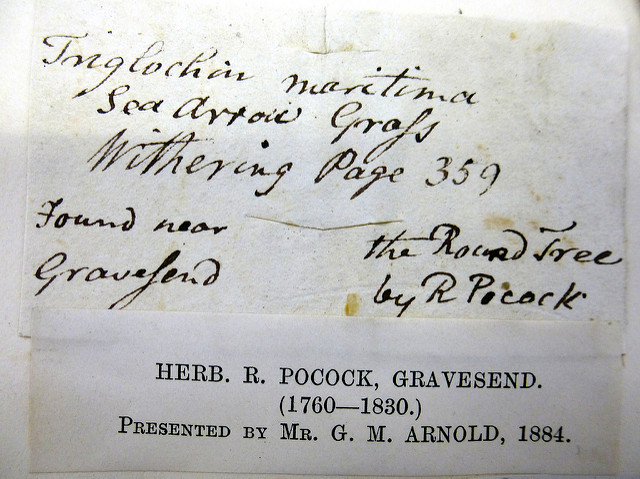 Triglochin maritima
Sea Arrow Grass
Withering Page 359
Found near the Round Tree
Gravesend by R Pocock
HERB. R. POCOCK, GRAVESEND.
(1760—1830.)
PRESENTED BY MR. G. M. ARNOLD, 1884.